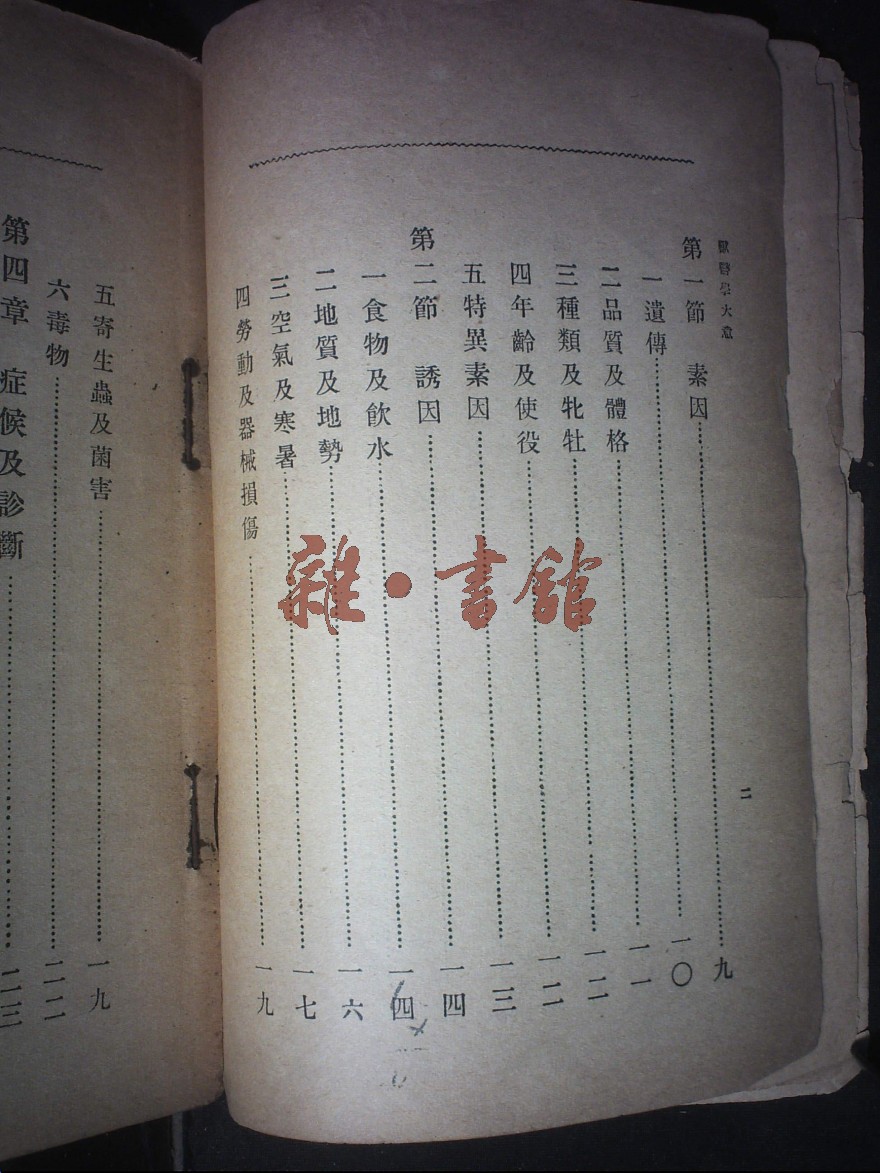 獸醫學大意
二
第一節 素因……九
一遺傳……一〇
二品質及體格……一一
三種類及牝牡……一二
四年齡及使役……一二
五特異素因……一三
第二節 誘因……一四
一食物及飲水……一四
二地質及地勢……一六
三空氣及寒暑……一七
四勞動及器械損傷……一九
五寄生蟲及菌害……一九
六毒物……二二
第四章 症候及診斷……二三
雜·書館